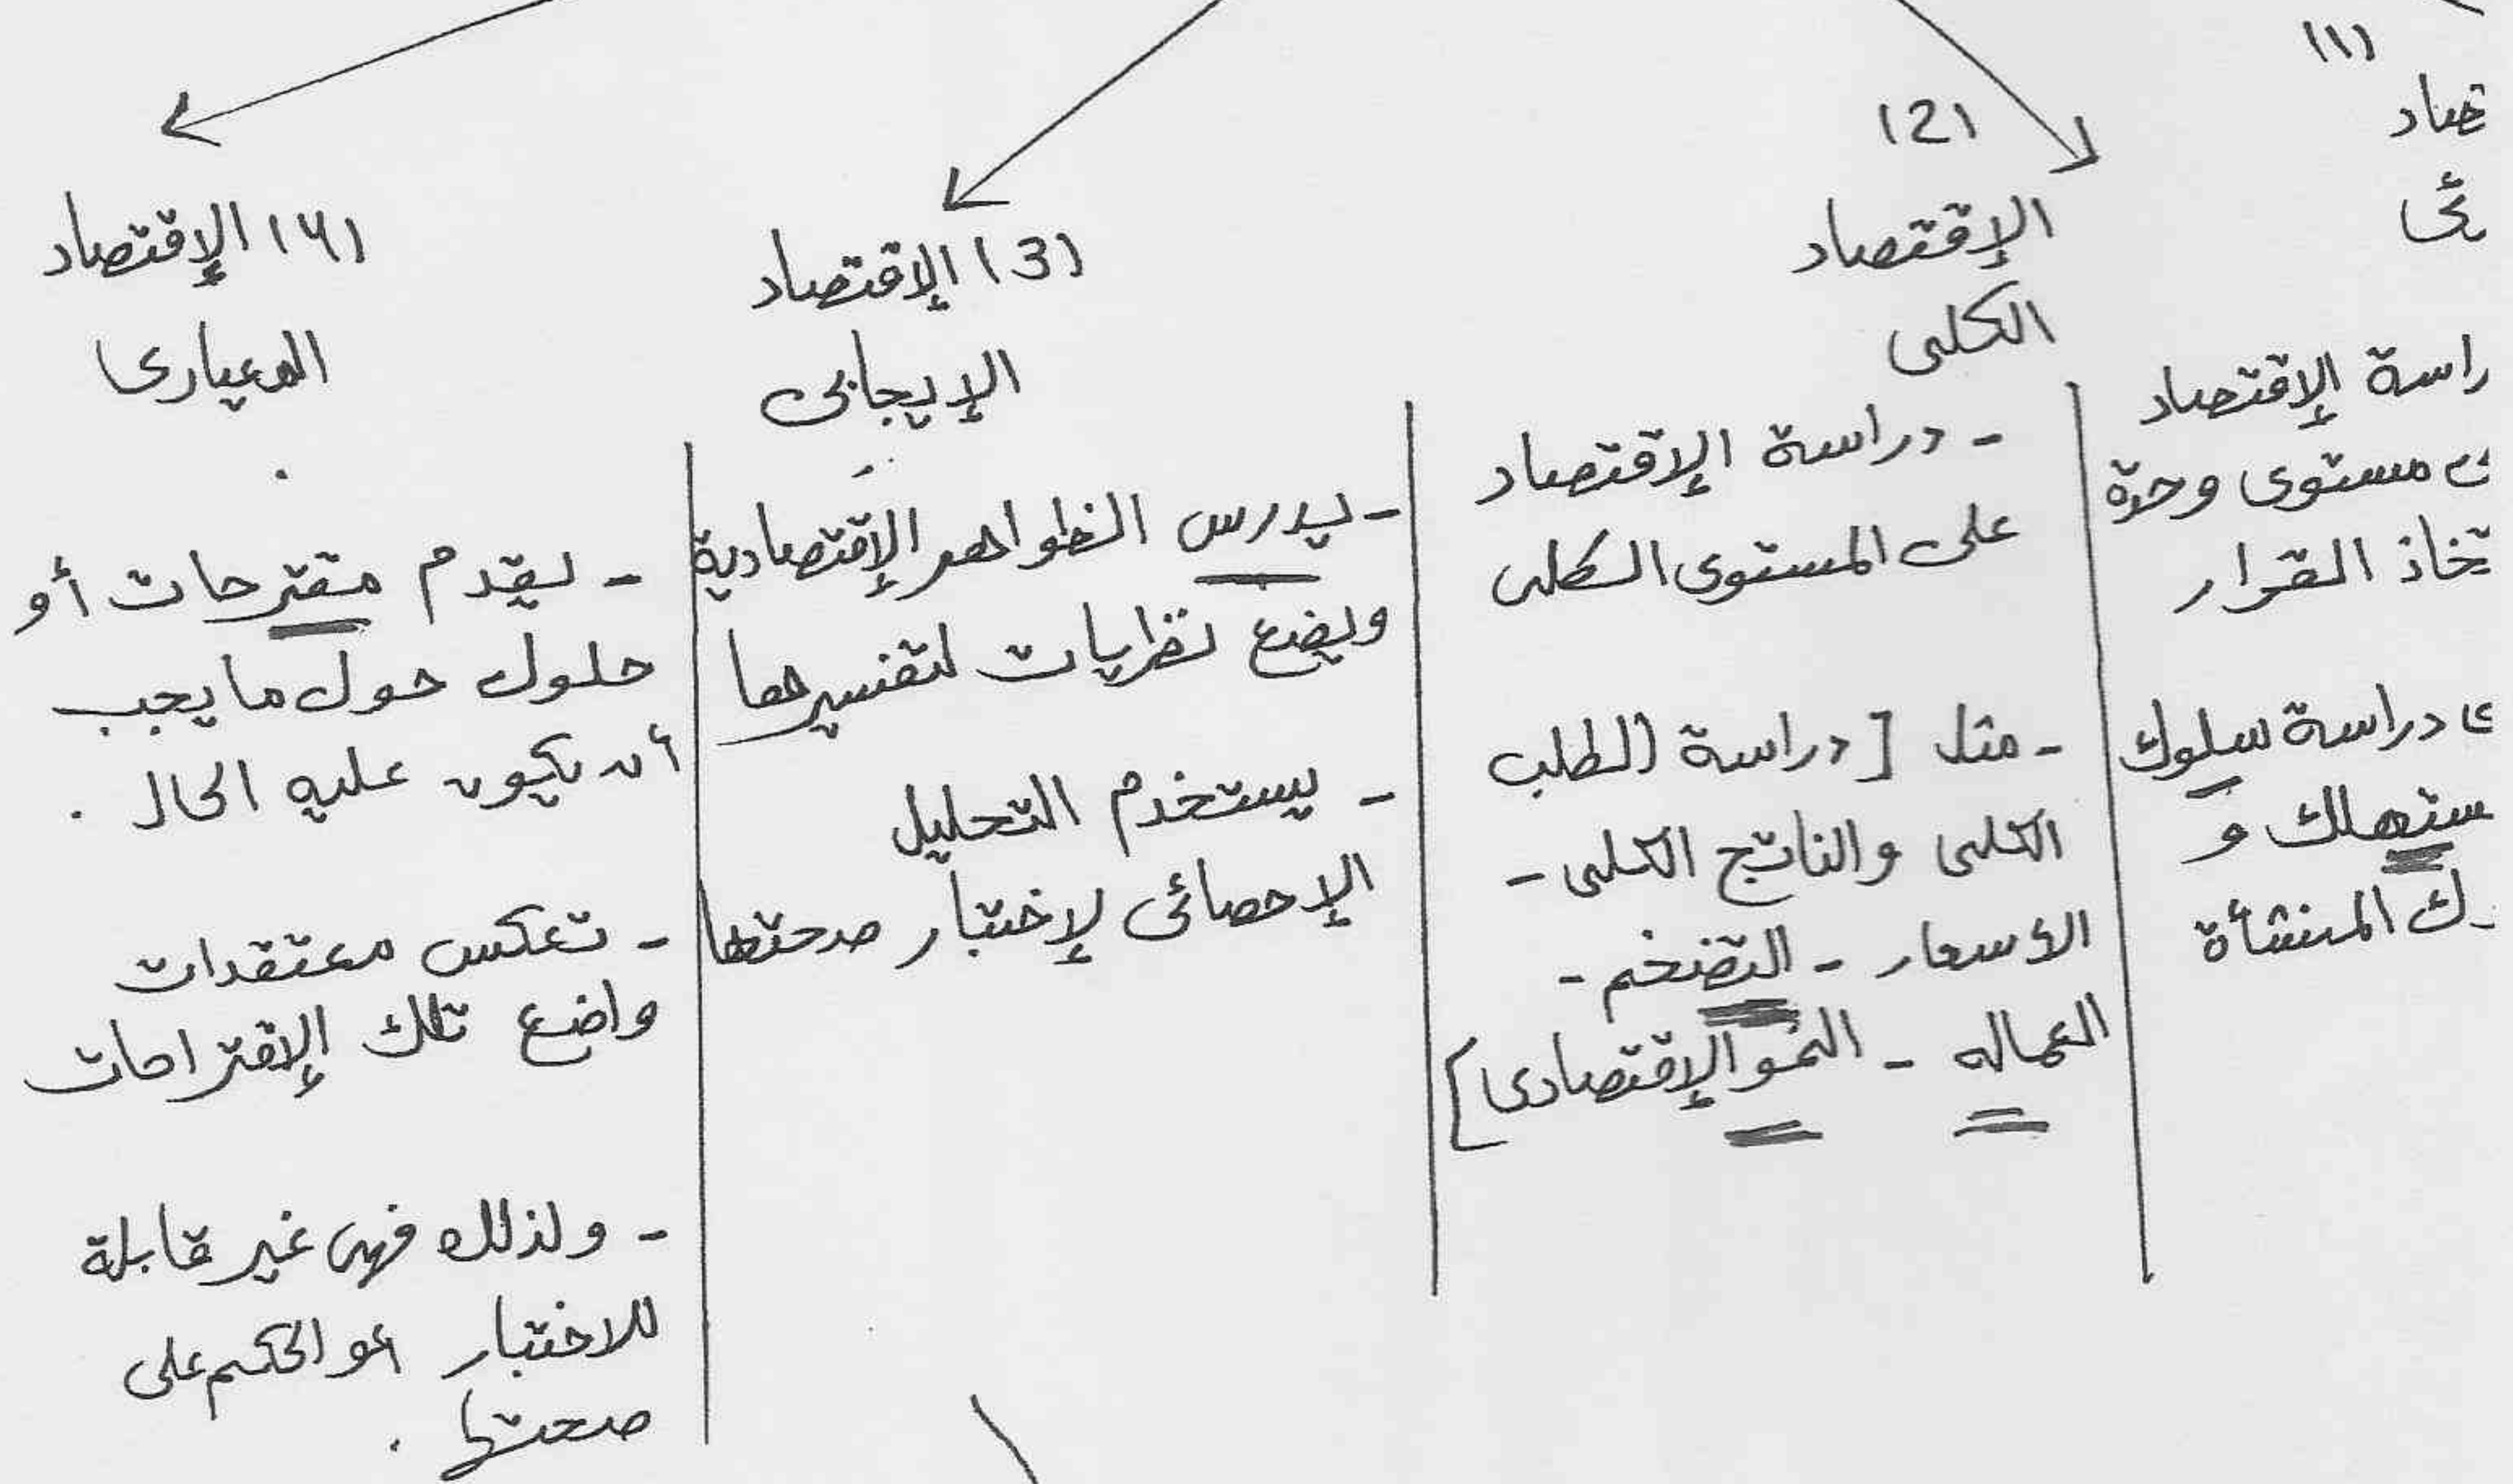 (1)
صاد
ئى
راسة الإقتصاد
مستوى وحدة
تخاذ القرار
دراسة سلوك
ستهلك و
ك المنشأة
(2)
الإقتصاد
الكلى
- دراسة الإقتصاد
على المستوى الكلى
- مثل [دراسة (الطلب
الكلى والناتج الكلى -
الأسعار - التضخم -
العماله - النمو الإقتصادى]
(3) الإقتصاد
الإيجابى
- يدرس الظواهر الإقتصادية
ويضع نظريات لتفسيرها
- يستخدم التحليل
الإحصائى لإختبار صحتها
(4) الإقتصاد
المعيارى
- يقدم مقترحات أو
حلول حول ما يجب
أن يكون عليه الحال .
- تعكس معتقدات
واضع تلك الإقتراحات
- ولذلك فهى غير قابلة
للاختبار أو الحكم على
صحتها .